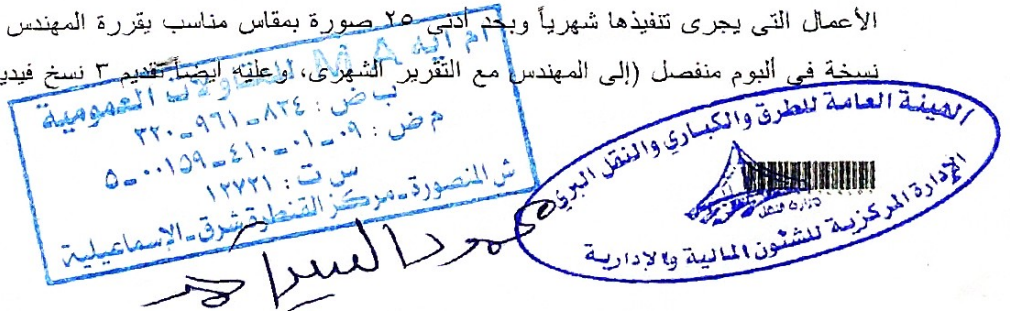 الأعمال التى يجرى تنفيذها شهرياً وبحد أدنى ٢٥ صورة بمقاس مناسب يقررة المهندس
نسخة في ألبوم منفصل (إلى المهندس مع التقرير الشهرى، وعليه ايضاً تقديم ٣ نسخ فيدي
ام ايه M A للمقاولات العمومية
ب ض : ٨٢٤-٩٦١-٣٢٠
م ض : ٠٩-٠١-٤١٠-٠٠١٥٩-٥
س ت : ١٢٧٢١
ش المنصورة - مركز القنطرة شرق - الإسماعيلية
الهيئة العامة للطرق والكباري والنقل البري
وزارة النقل
الإدارة المركزية للشئون المالية والإدارية
محمود السيد احمد